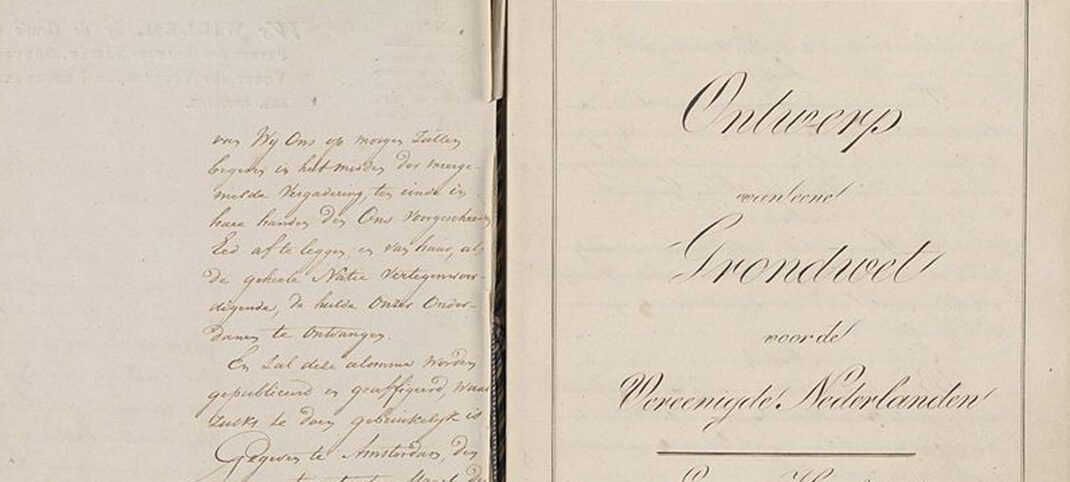 van Wij Ons op morgen zullen
begeven in het midden der meerge-
melde Vergadering, ten einde in
hare handen den Ons voorgeschreven
Eed af te leggen, en van haar, als
de geheele Natie vertegenwoor-
digende, de hulde Onzer Onder-
danen te ontvangen.
En zal deze alomme worden
gepubliceerd en geaffigeerd, waar
zulks te doen gebruikelijk is
Gegeven te Amsterdam, den
Ontwerp
van eene
Grondwet
voor de
Vereenigde Nederlanden